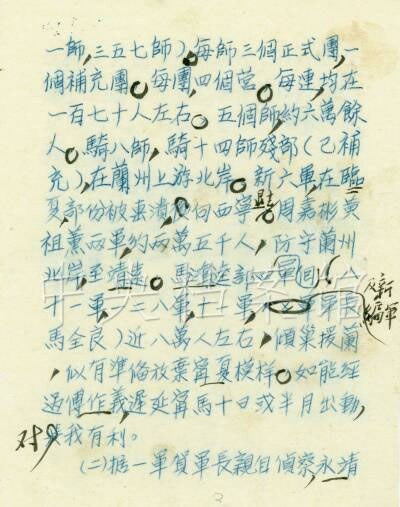 一師,三五七師),每師三個正式團,一
個補充團。每團四個營。每連均在
一百七十人左右。五個師約六萬餘
人。騎八師,騎十四師殘部(已補
充),在蘭州上游北岸。新六軍,在臨
夏部份被表潰,及向西寧。周嘉彬黄
祖薰兩軍約兩萬五千人,防守蘭州
北岸至靖遠。馬鴻逵部四軍(
十一軍,一二八軍,十軍,
馬全良)近八萬人左右,傾巢援蘭
新編軍
,似有準備放棄甯夏模樣。如能經
過傅作義遲延甯馬十日或半月出動,
对我有利。
(二)据一軍賀軍長親自偵察,永靖